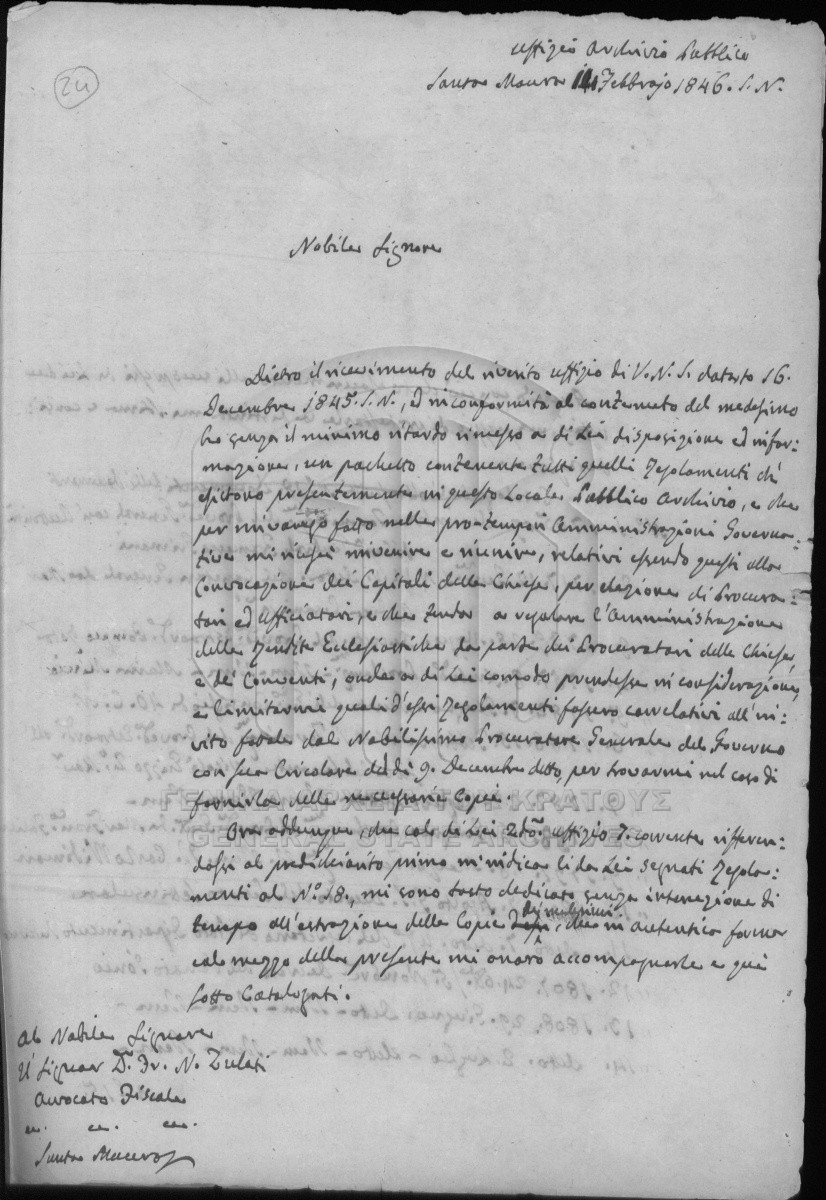 24
Uffizio Archivio Pubblico
Santa Maura Febbrajo 1846. S. N.
Nobile Signore
Dietro il ricevimento del riverito uffizio di V. N. S. datato 16.
Decembre 1845. S. N., ed in conformità al contenuto del medesimo
ho senza il minimo ritardo rimesso a di Lei disposizione ed infor-
mazione, un pachetto contenente tutti quelli Regolamenti ch'
esistono presentemente in questo Locale Pubblico Archivio, e che
per fatto nelle pro-tempori Amministrazioni Governa-
tive mi riescì rinvenire e riunire, relativi essendo questi alla
Convocazione dei Capitoli delle Chiese, per elezione di Procura-
tori ed Officiatori, e che a regolare l'Amministrazione
delle Rendite Ecclesiastiche da parte dei Procuratori delle Chiese,
e de' Conventi, onde a di Lei comodo prendesse in considerazione,
e limitarmi quali d'essi Regolamenti fossero correlativi all'in-
vito fattole dal Nobilissimo Procuratore Generale del Governo
con sua Circolare 9. Decembre detto, per trovarmi nel caso di
fornirla delle necessarie Copie.
ΓΕΝΙΚΑ ΑΡΧΕΙΑ ΤΟΥ ΚΡΑΤΟΥΣ
GENERAL STATE ARCHIVES
Ora addunque, che col di Lei 2do. uffizio 7. corrente rifferen-
dossi al predichiarito primo m'indica li da Lei segnati Regola-
menti al No. 18., mi sono tosto dedicato senza interruzione di
tempo all'estrazione delle Copie dei medesimi, che in autentica forma
col mezzo della presente mi onoro accompagnarle e qui
sotto Catalogati.
Al Nobile Signore
Il Signor Dr. Fr. N. Zulati
Avvocato Fiscale
Santa Maura